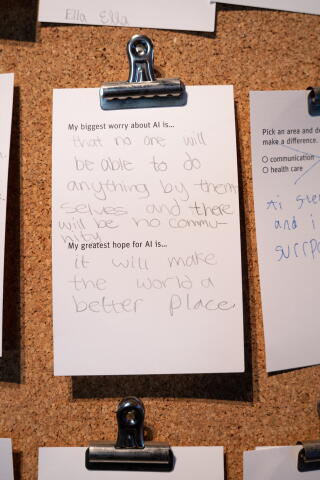 Ella Ella
My biggest worry about AI is...
that no one will
be able to do
anything by them
selves and there
will be no commu-
nity
My greatest hope for AI is...
it will make
the world a
better place
Pick an area and
make a difference.
communication
health care
Ai
and i